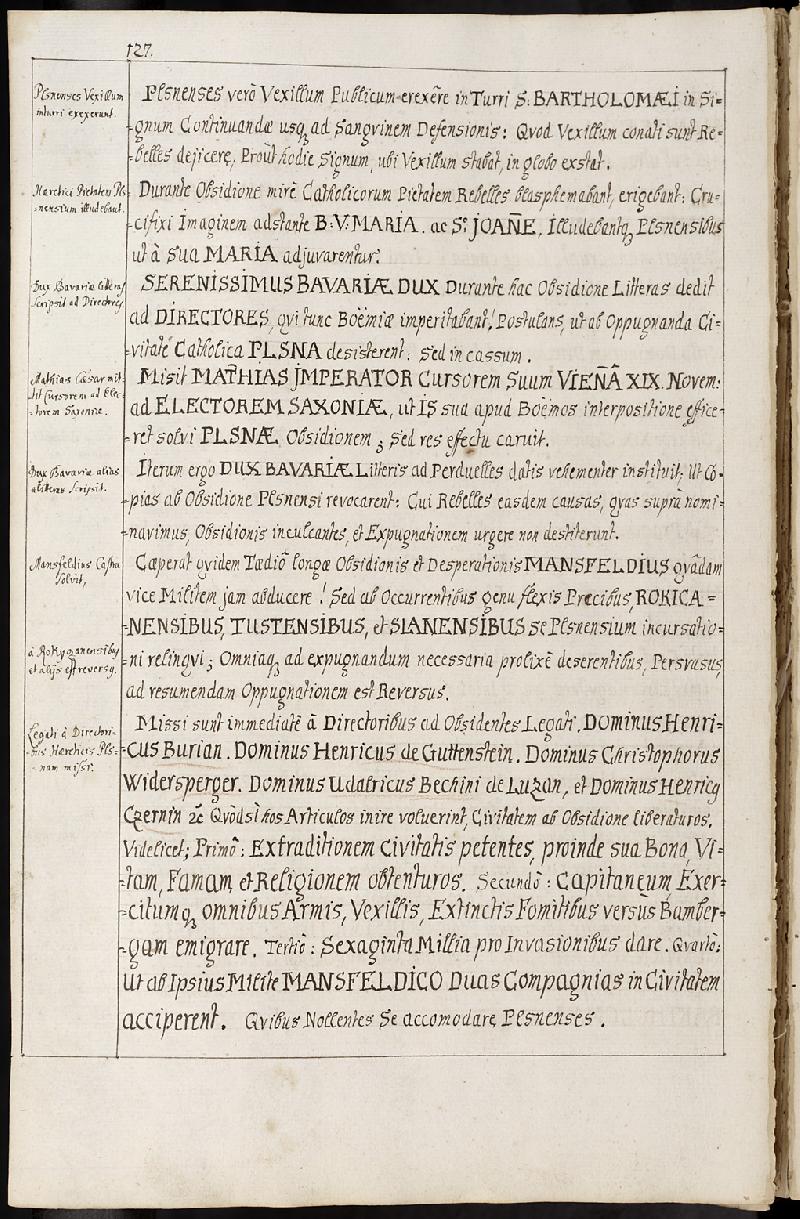 127.
Plsnenses Vexillum
in turri exexerunt.
Plsnenses verò Vexillum Publicum erexêre in Turri S: BARTHOLOMÆI in Si=
gnum Continuandæ usq, ad Sangvinem Defensionis: Qvod Vexillum conati sunt Re=
belles dejicere, Proùt hodie Signum, ubi Vexillum stabat, in globo exstat.
Hæretici Pietatem Pl
snensium illudebant.
Durante Obsidione mirè Catholicorum Pietatem Rebelles blasphemabant, erigebant: Cru=
cifixi Imaginem adstante B:V:MARIA. ac St. JOAÑE. Illudebantq, Plsnensibus
ut à sua MARIA adjuvarentur.
Dux Bavariæ literas
scripsit ad Directores
SERENISSIMUS BAVARIÆ DUX Durante hac Obsidione Litteras dedit
ad DIRECTORES, qvi tunc Boëmiæ imperitabant! Postulans, ut ab Oppugnanda Ci=
vitatê Catholica PLSNA desisterent. Sed in cassum.
Mathias Cæsar mit=
tit Cursorem ad Ele=
ctorem Saxoniæ.
Misit MATHIAS IMPERATOR Cursorem Suum VIEÑÂ XIX. Novem:
ad ELECTOREM SAXONIÆ, ut IS sua apud Boëmos interpositione effice=
ret solvi PLSNÆ Obsidionem; Sed res effectu caruit.
Dux Bavariæ alias
literas scripsit.
Iterum ergo DUX BAVARIÆ Litteris ad Perduelles datis vehementer institit: Ut Co=
pias ab Obsidione Plsnensi revocarent: Cui Rebelles easdem causas, qvas suprà nomi=
navimus, Obsidionis inculcantes, et Expugnationem urgere non destiterunt.
Mansfeldius Castra
solvit,
Cæperat qvidem Tædiô longæ Obsidionis et Desperationis MANSFELDIUS qvâdam
vice Militem jam abducere! Sed ab Occurrentibus genu flexis Precibus, ROKICA=
NENSIBUS, TUSTENSIBUS, et SLANENSIBUS Se Plsnensium incursatio=
à Rokyzanensibus
et alijs est reversq.
ni relinqvi; Omniaq, ad expugnandum necessaria prolixè deserentibus, Persvasus,
ad resumendam Oppugnationem est Reversus.
Legati à Directori=
bus Hæreticis Pls=
nam missi.
Missi sunt immediatè à Directoribus ad Obsidentes Legati. Dominus Henri=
cus Burian. Dominus Henricus de Guttenstein. Dominus Christophorus
Widersperger. Dominus Udalricus Bechini de Luzan, et Dominus Henricq
Czernin &c Qvòd si hos Articulos inire voluerint, Civitatem ab Obsidione liberaturos.
Videlicet; Primô: Extraditionem Civitatis petentes, proinde sua Bona, Vi=
tam, Famam, et Religionem obtenturos. Secundô: Capitaneum, Exer=
citumq, omnibus Armis, Vexillis, Extinctis Fomitibus versùs Bamber=
gam emigrare. Tertiô: Sexaginta Millia pro Invasionibus dare. Qvartò:
Ut ab Ipsius Milite MANSFELDICO Duas Compagnias in Civitatem
acciperent. Qvibus Nollentes Se accomodare Plsnenses.